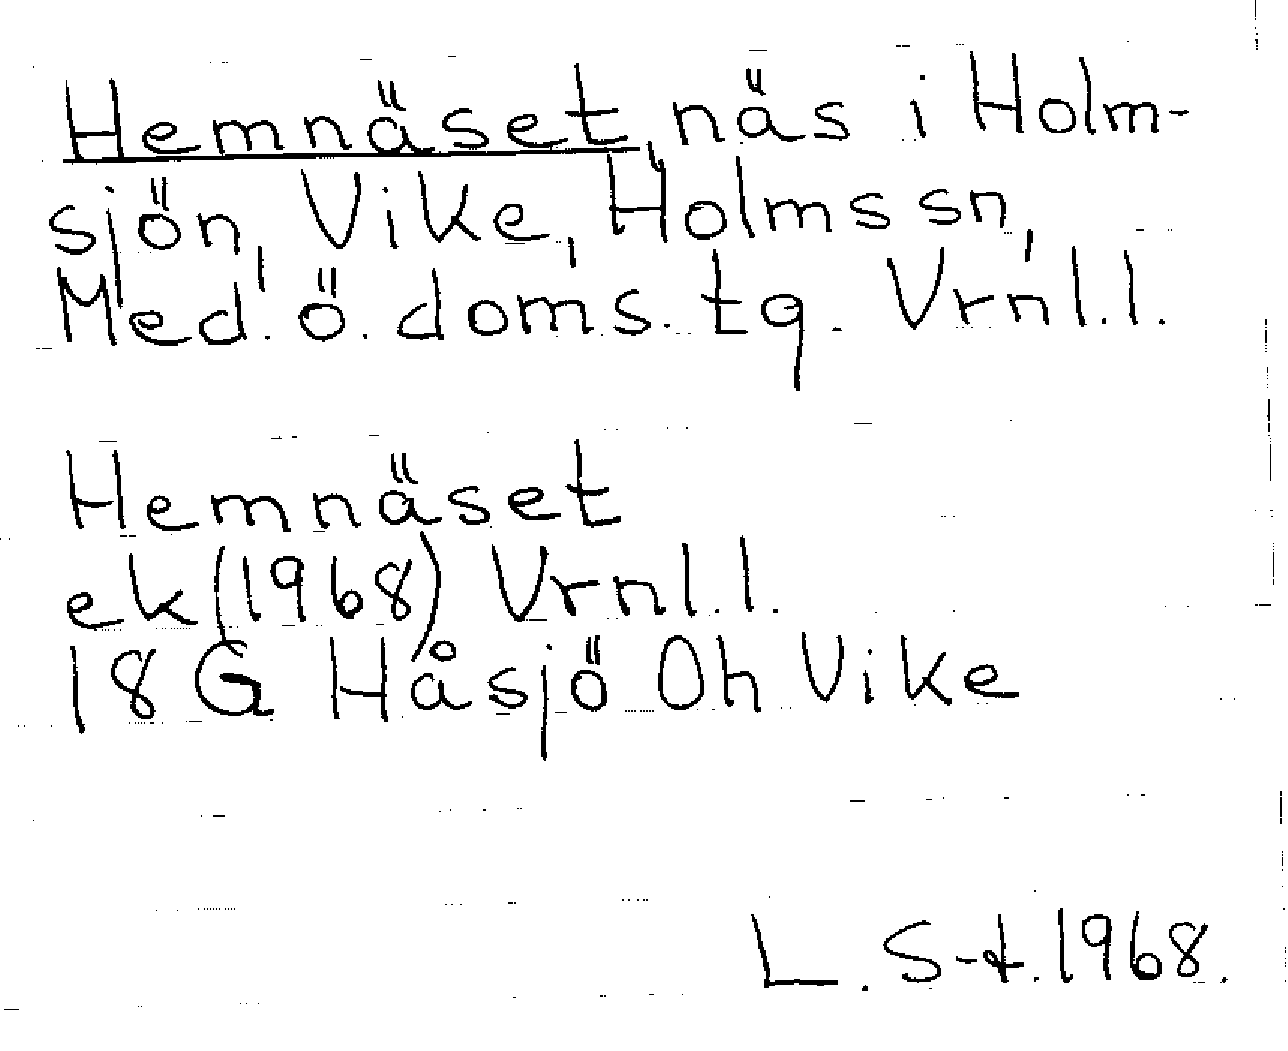 Hemnäset, näs i Holm-
sjön, Vike, Holms sn,
Med. ö. doms. tg. Vrnl. l.
Hemnäset
ek (1968) Vrnl. l.
18 G Håsjö Oh Vike
L. S-t. 1968.